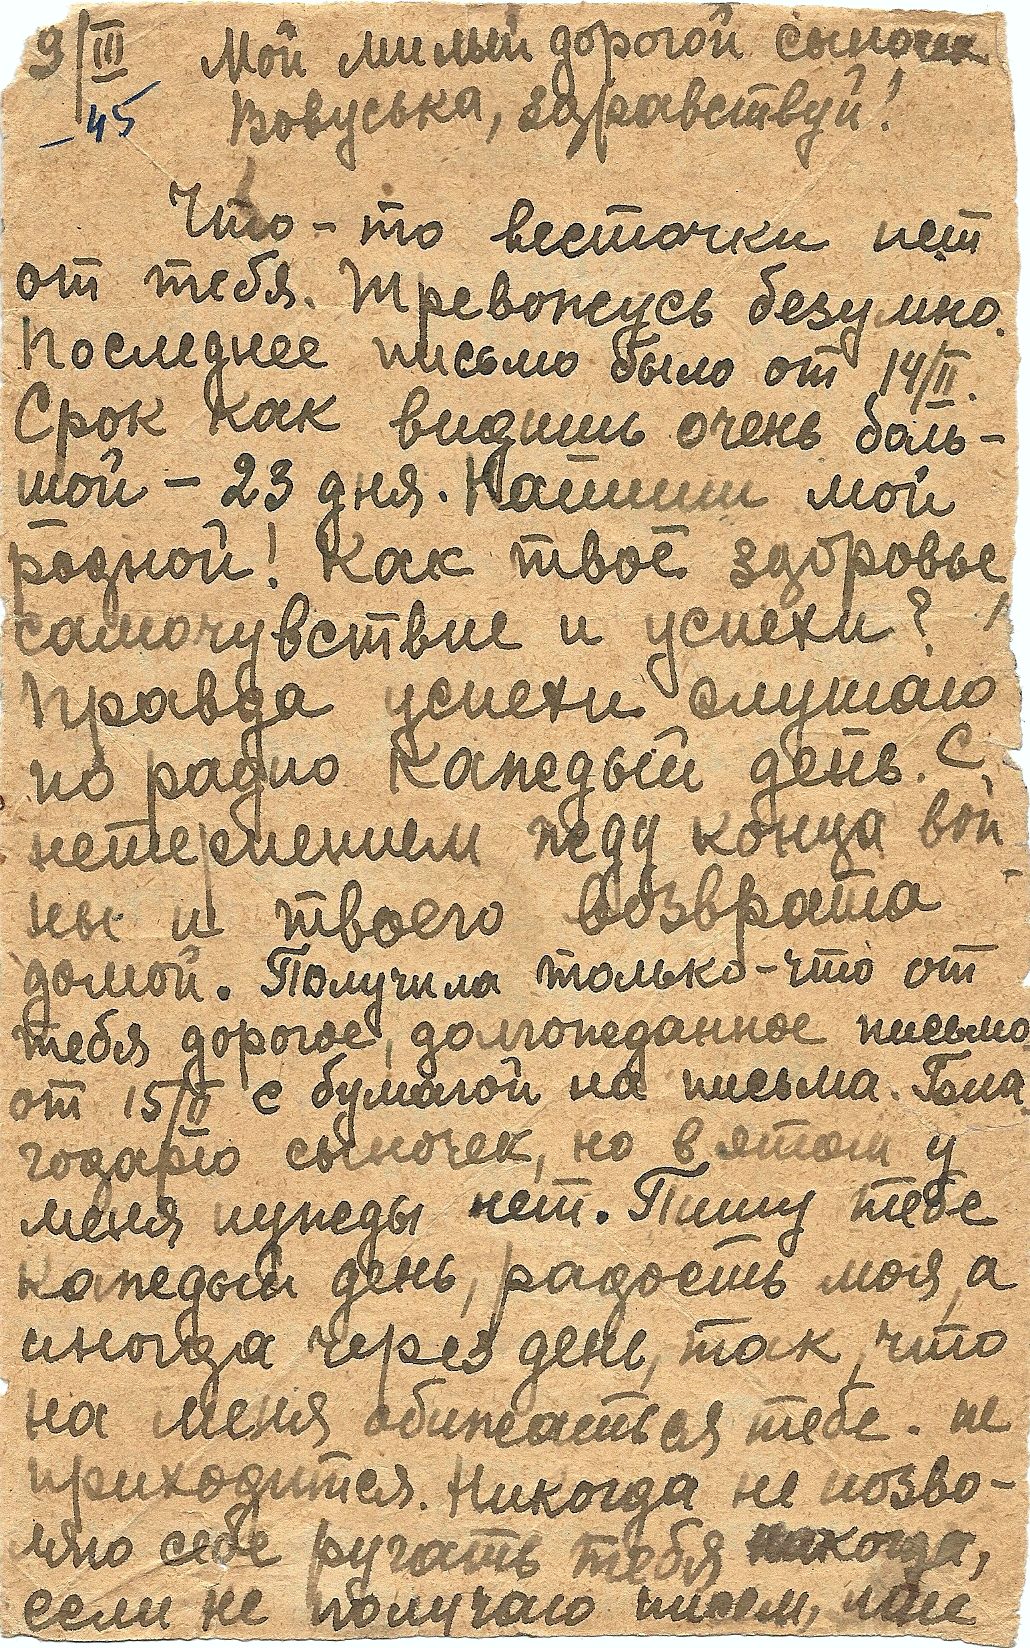 9/III
-45
Мой милый дорогой сыночек
Вовуська, здравствуй!
Что-то весточки нет
от тебя. Тревожусь безумно.
Последнее письмо было от 14/II.
Срок как видишь очень боль-
шой - 23 дня. Напиши мой
родной! Как твоё здоровье
самочувствие и успехи?
Правда успехи слушаю
по радио каждый день. С
нетерпением жду конца вой
ны и твоего возврата
домой. Получила только-что от
тебя дорогое, долгожданное письмо
от 15/II с бумагой на письма. Бла
годарю сыночек, но в этом у
меня нужды нет. Пишу тебе
каждый день, радость моя, а
иногда через день, так, что
на меня обижаться тебе не
приходится. Никогда не позво-
ляю себе ругать тебя
если не получаю писем,